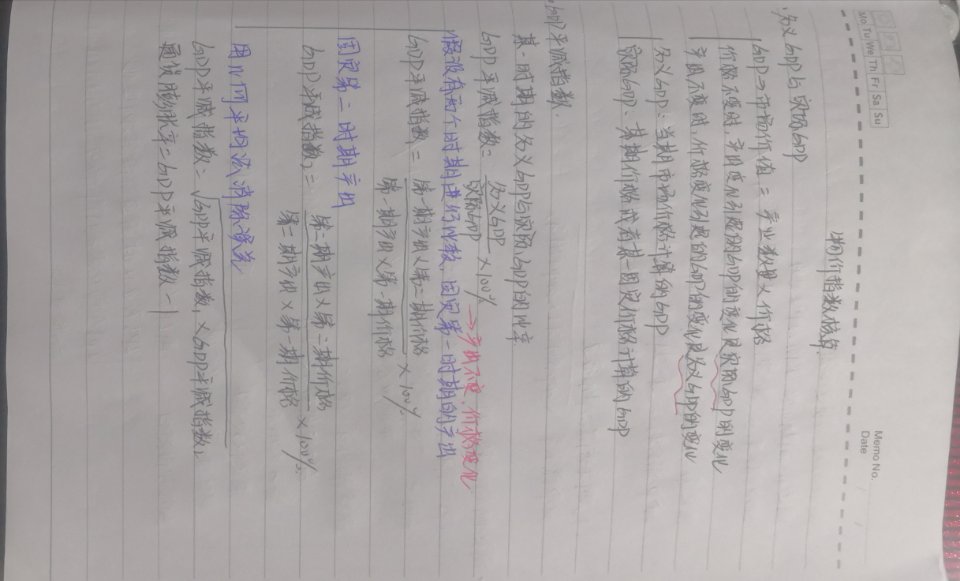 Memo No.
Date
Mo Tu We Th Fr Sa Su
物价指数核算
名义GDP与实际GDP
GDP→市场价值=产业数量×价格
价格不变时,产出变化引起的GDP的变化是实际GDP的变化
产出不变时,价格变化引起的GDP的变化是名义GDP的变化
名义GDP:当期市场价格计算的GDP
实际GDP:基期价格或者某一固定价格计算的GDP
GDP平减指数.
某一时期的名义GDP与实际GDP的比率
GDP平减指数=名义GDP/实际GDP×100% →产出不变,价格变化
假设有两个时期进行比较,固定第一时期的产出
GDP平减指数1=第一期产出×第二期价格/第一期产出×第一期价格×100%
固定第二时期产出
GDP平减指数2=第二期产出×第二期价格/第二期产出×第一期价格×100%
用几何平均法消除误差
GDP平减指数=√GDP平减指数1×GDP平减指数2
通货膨胀率=GDP平减指数-1